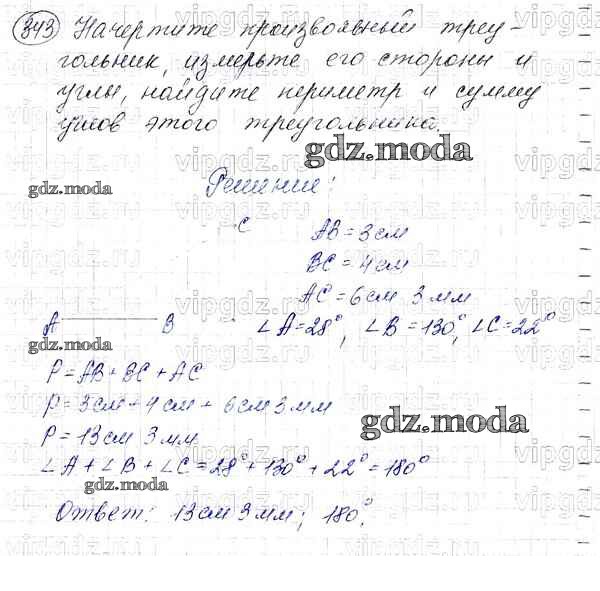 343 Начертите произвольный треу-
гольник, измерьте его стороны и
углы, найдите периметр и сумму
углов этого треугольника.
gdz.moda
gdz.moda
Решение:
C
AB = 3 см
BC = 4 см
AC = 6 см 3 мм
A B ∠A = 28°, ∠B = 130°, ∠C = 22°
gdz.moda
P = AB + BC + AC
P = 3 см + 4 см + 6 см 3 мм
gdz.moda
P = 13 см 3 мм
∠A + ∠B + ∠C = 28° + 130° + 22° = 180°
gdz.moda
Ответ: 13 см 3 мм; 180°.